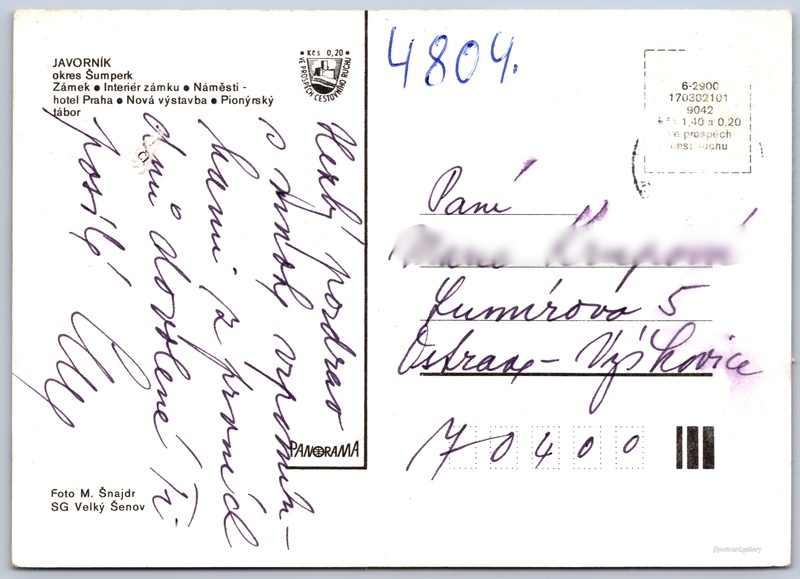 JAVORNÍK
okres Šumperk
Zámek ● Interiér zámku ● Náměstí -
hotel Praha ● Nová výstavba ● Pionýrský
tábor
Kčs 0,20
VE PROSPĚCH CESTOVNÍHO RUCHU
4804.
6-2900
170302101
9042
Kčs 1,40 a 0,20
ve prospěch
cest. ruchu
Hezký pozdrav
s
kami z prvních
dnů dovolené Ti
posílá
Paní
Lumírova 5
Ostrava - Výškovice
70400
PANORAMA
Foto M. Šnajdr
SG Velký Šenov